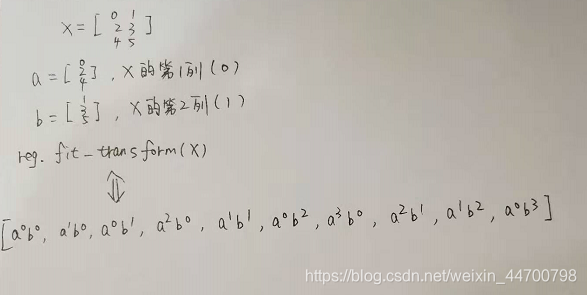 X = [ 0 1
2 3
4 5 ]
a = [ 0 2 4 ] , X 的第1列 (0)
b = [ 1 3 5 ] , X 的第2列 (1)
reg. fit_transform(X)
⇕
[ a⁰b⁰, a¹b⁰, a⁰b¹, a²b⁰, a¹b¹, a⁰b², a³b⁰, a²b¹, a¹b², a⁰b³ ]
https://blog.csdn.net/weixin_44700798